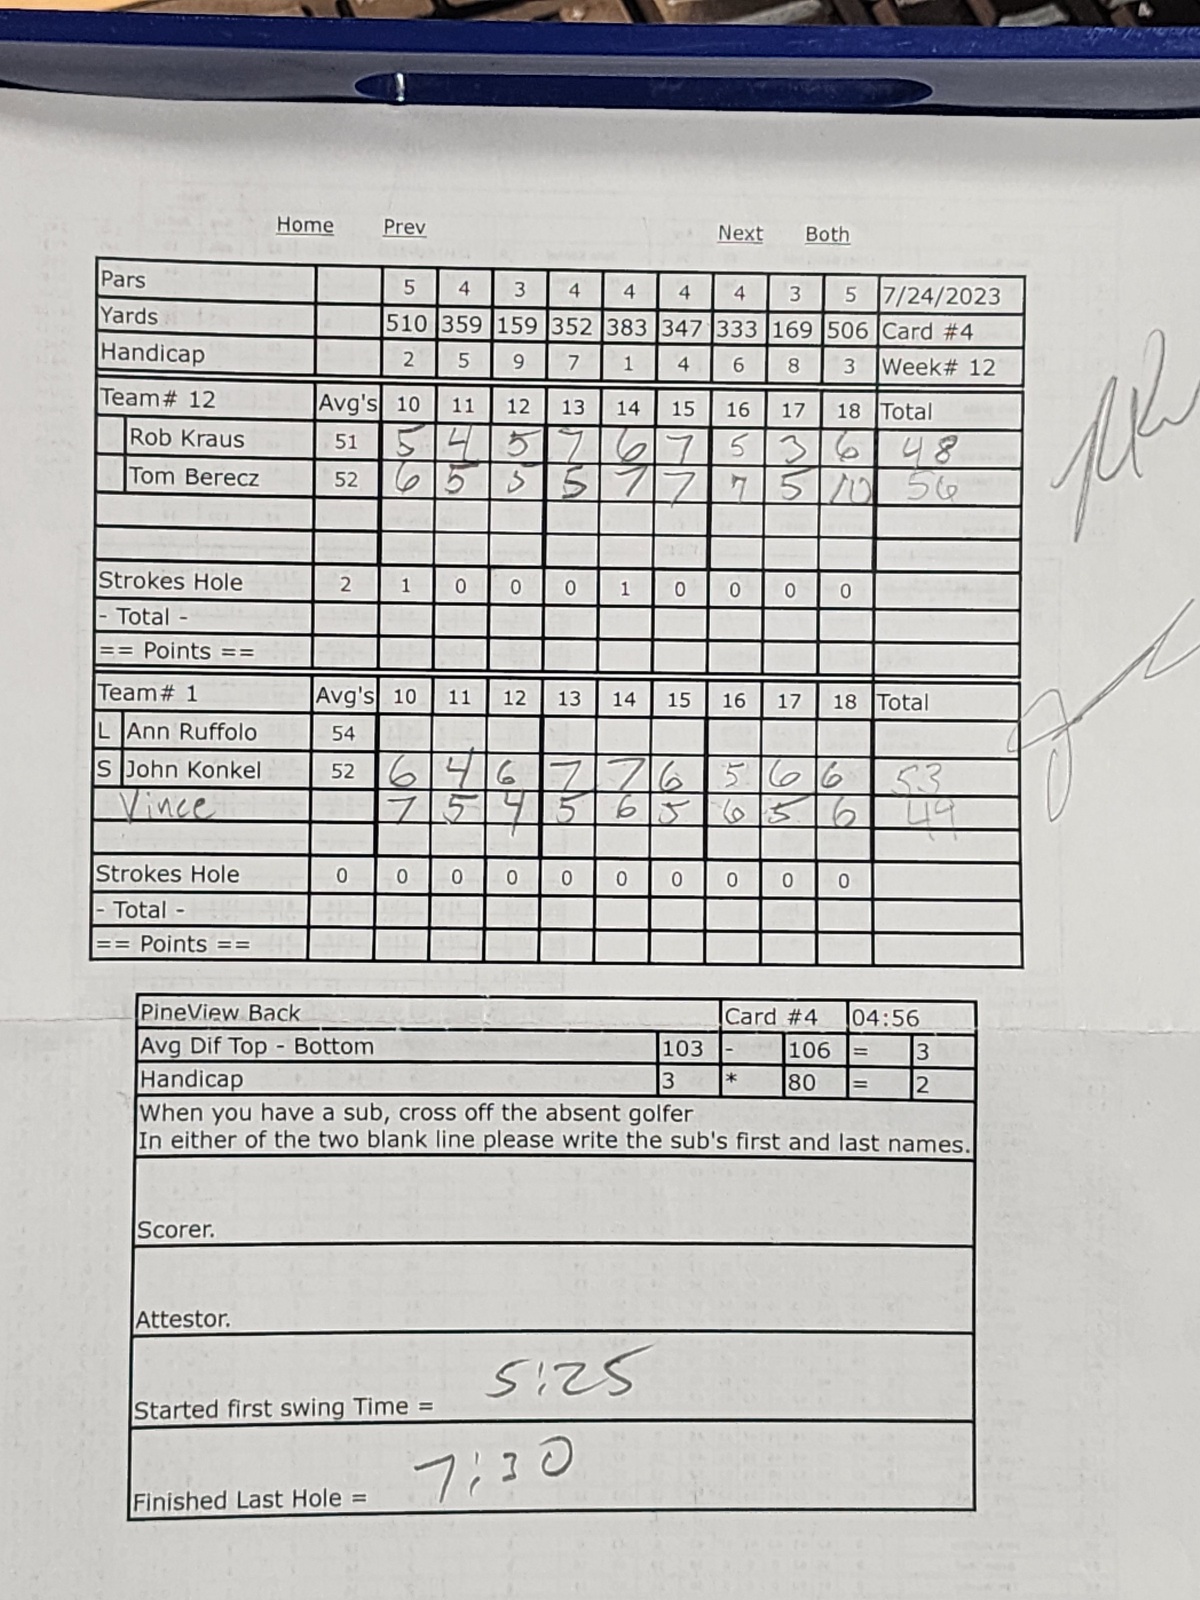 Home Prev Next Both
Pars 5 4 3 4 4 4 4 3 5 7/24/2023
Yards 510 359 159 352 383 347 333 169 506 Card #4
Handicap 2 5 9 7 1 4 6 8 3 Week# 12
Team# 12 Avg's 10 11 12 13 14 15 16 17 18 Total
Rob Kraus 51 5 4 5 7 6 7 5 3 6 48
Tom Berecz 52 6 5 5 5 7 7 7 5 10 56
Strokes Hole 2 1 0 0 0 1 0 0 0 0
- Total -
== Points ==
Team# 1 Avg's 10 11 12 13 14 15 16 17 18 Total
L Ann Ruffolo 54
S John Konkel 52 6 4 6 7 7 6 5 6 6 53
Vince 7 5 4 5 6 5 6 5 6 49
Strokes Hole 0 0 0 0 0 0 0 0 0 0
- Total -
== Points ==
PineView Back Card #4 04:56
Avg Dif Top - Bottom 103 - 106 = 3
Handicap 3 * 80 = 2
When you have a sub, cross off the absent golfer
In either of the two blank line please write the sub's first and last names.
Scorer.
Attestor.
Started first swing Time = 5:25
Finished Last Hole = 7:30